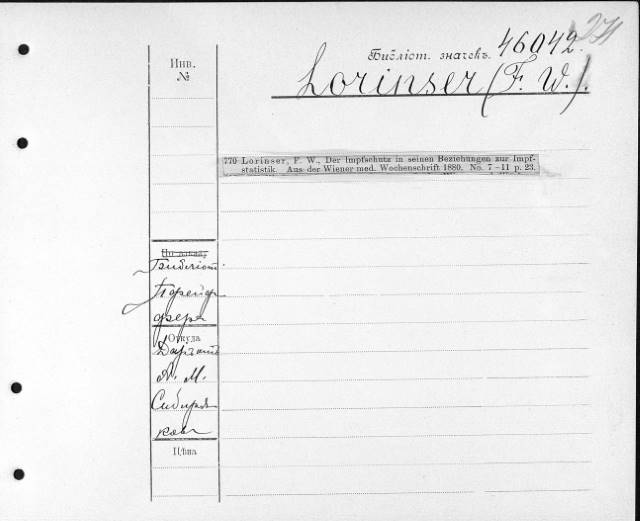 274
Библіот. значекъ. 46042.
Инв.
№
Lorinser (F. W.).
770 Lorinser, F. W., Der Impfschutz in seinen Beziehungen zur Impf-
statistik. Aus der Wiener med. Wochenschrift 1880. No. 7–11 p. 23.
Библіот.
Пфейф
фера
Откуда
Даръ отъ
А. М.
Сибиря
кова
Цѣна